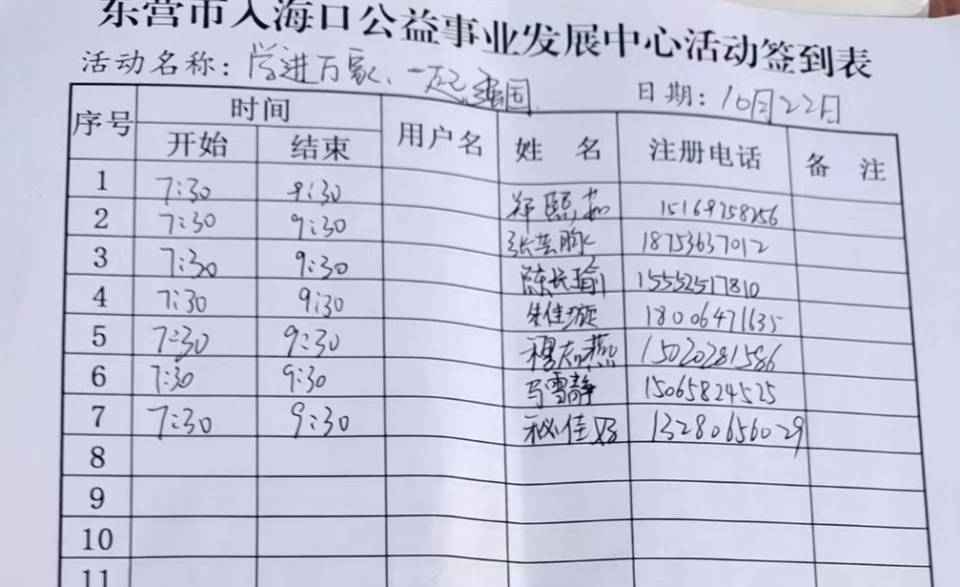 东营市入海口公益事业发展中心活动签到表
活动名称：学进万家、一起强国
日期：10月22日
序号 时间 用户名 姓 名 注册电话 备 注
开始 结束
1 7:30 9:30 郑熙茹 15169258256
2 7:30 9:30 张芸 18753637012
3 7:30 9:30 陈长瑜 15552517810
4 7:30 9:30 朱佳璇 18006471635
5 7:30 9:30 穆燕 15020281586
6 7:30 9:30 马雪静 15065824525
7 7:30 9:30 秘佳 13280656029
8
9
10
11